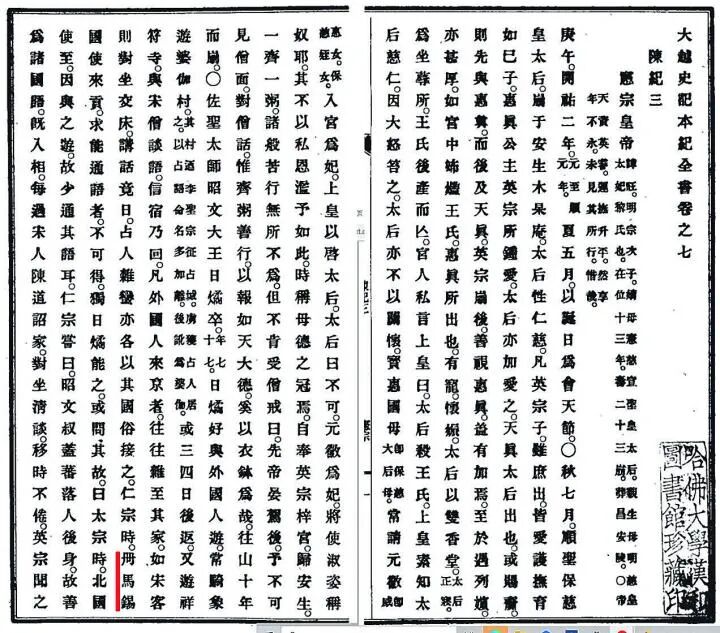 大越史記本紀全書卷之七
陳紀三
憲宗皇帝 諱旺。明宗次子。嫡母憲慈宣聖皇太后。親生母明慈。太妃黎氏也。在位十三年。壽二十三崩。葬昌安陵。○帝天資英睿。運撫升平。然享年不永。未見其所行。惜哉。
庚午。開祐二年。元至順元年。夏五月。以誕日爲會天節。○秋七月。順聖保慈
皇太后。崩于安生木杲庵。太后性仁慈。凡英宗子。雖庶出。皆愛護撫育
如已子。惠眞公主英宗所鍾愛。太后亦加愛之。天眞太后出也。或賜齋
則先與惠眞。而後及天眞。英宗崩後。善視惠眞。益有加焉。至於遇列嬪
亦甚厚。如宮中姊媼王氏。惠眞所出也。有寵。懷娠。太后以雙香堂。太后正寢。
爲坐蓐所。王氏後產而亡。宮人私言上皇曰。太后殺王氏。上皇素知太
后慈仁。因大怒笞之。太后亦不以關懷。實惠國母。卽保慈太后母。常請元徽威
惠女。保慈姪女。入宮爲妃。上皇以啓太后。太后曰不可。元徽爲妃。將使淑姿稱
奴耶。其不以私恩濫予如此。時稱母德之冠焉。自奉英宗梓宮。歸安生。
一齊一粥。諸般苦行無所不爲。但不肯受僧戒。曰。先帝晏駕後。予不可
見僧面。對僧話。惟齊粥善行。以報如天大德。奚以衣鉢爲哉。往山十年
而崩。○佐聖太師昭文大王日燏卒。年七十七。日燏好與外國人遊。常騎象
遊婆伽村。其村迺李聖宗征占城。虜獲占人居之。以占語命名多加離。後訛爲婆伽。或三四日後返。又遊祥
符寺。與宋僧談語。信宿乃回。凡外國人來京者。往往雜至其家。如宋客
則對坐交床。講話竟日。占人雜蠻亦各以其國俗接之。仁宗時。冊馬錫
國使來貢。求能通語者。不可得。獨日燏能之。或問其故。曰太宗時。北國
使至。因與之遊。故少通其語耳。仁宗嘗曰。昭文叔蓋蕃落人後身。故善
爲諸國語。既入相。每過宋人陳道詔家。對坐清談。移時不倦。英宗聞之
哈佛大學漢和圖書館珍藏印